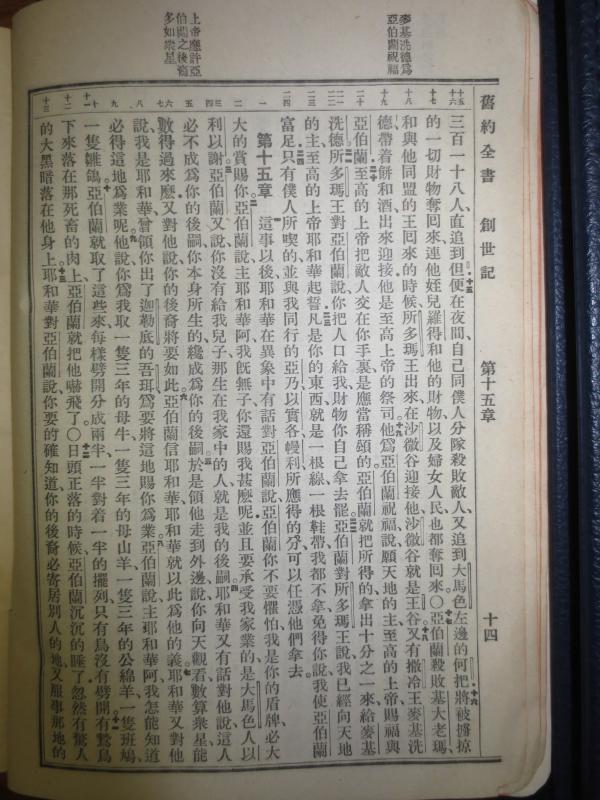 麥基洗德爲
亞伯蘭祝福
上帝應許亞
伯蘭之後裔
多如衆星
舊約全書 創世記 第十五章 十四
三百一十八人直追到但便在夜間自己同僕人分隊殺敗敵人又追到大馬色左邊的何把將被擄掠
的一切財物奪囘來連他姪兒羅得和他的財物以及婦女人民也都奪囘來〇亞伯蘭殺敗基大老瑪
和與他同盟的王囘來的時候所多瑪王出來在沙微谷迎接他沙微谷就是王谷又有撒冷王麥基洗
德帶着餅和酒出來迎接他是至高上帝的祭司他爲亞伯蘭祝福說願天地的主至高的上帝賜福與
亞伯蘭至高的上帝把敵人交在你手裏是應當稱頌的亞伯蘭就把所得的拿出十分之一來給麥基
洗德所多瑪王對亞伯蘭說你把人口給我財物你自己拿去罷亞伯蘭對所多瑪王說我已經向天地
的主至高的上帝耶和華起誓凡是你的東西就是一根線一根鞋帶我都不拿免得你說我使亞伯蘭
富足只有僕人所喫的並與我同行的亞乃以實各幔利所應得的分可以任憑他們拿去
第十五章 這事以後耶和華在異象中有話對亞伯蘭說亞伯蘭你不要懼怕我是你的盾牌必大
大的賞賜你亞伯蘭說主耶和華阿我旣無子你還賜我甚麽呢並且要承受我家業的是大馬色人以
利以謝亞伯蘭又說你沒有給我兒子那生在我家中的人就是我的後嗣耶和華又有話對他說這人
必不成爲你的後嗣你本身所生的纔成爲你的後嗣於是領他走到外邊說你向天觀看數算衆星能
數得過來麽又對他說你的後裔將要如此亞伯蘭信耶和華耶和華就以此爲他的義耶和華又對他
說我是耶和華曾領你出了迦勒底的吾珥爲要將這地賜你爲業亞伯蘭說主耶和華阿我怎能知道
必得這地爲業呢他說你爲我取一隻三年的母牛一隻三年的母山羊一隻三年的公綿羊一隻班鳩
一隻雛鴿亞伯蘭就取了這些來每樣劈開分成兩半一半對着一半的擺列只有鳥沒有劈開有鷙鳥
下來落在那死畜的肉上亞伯蘭就把他嚇飛了〇日頭正落的時候亞伯蘭沉沉的睡了忽然有驚人
的大黑暗落在他身上耶和華對亞伯蘭說你要的確知道你的後裔必寄居別人的地又服事那地的